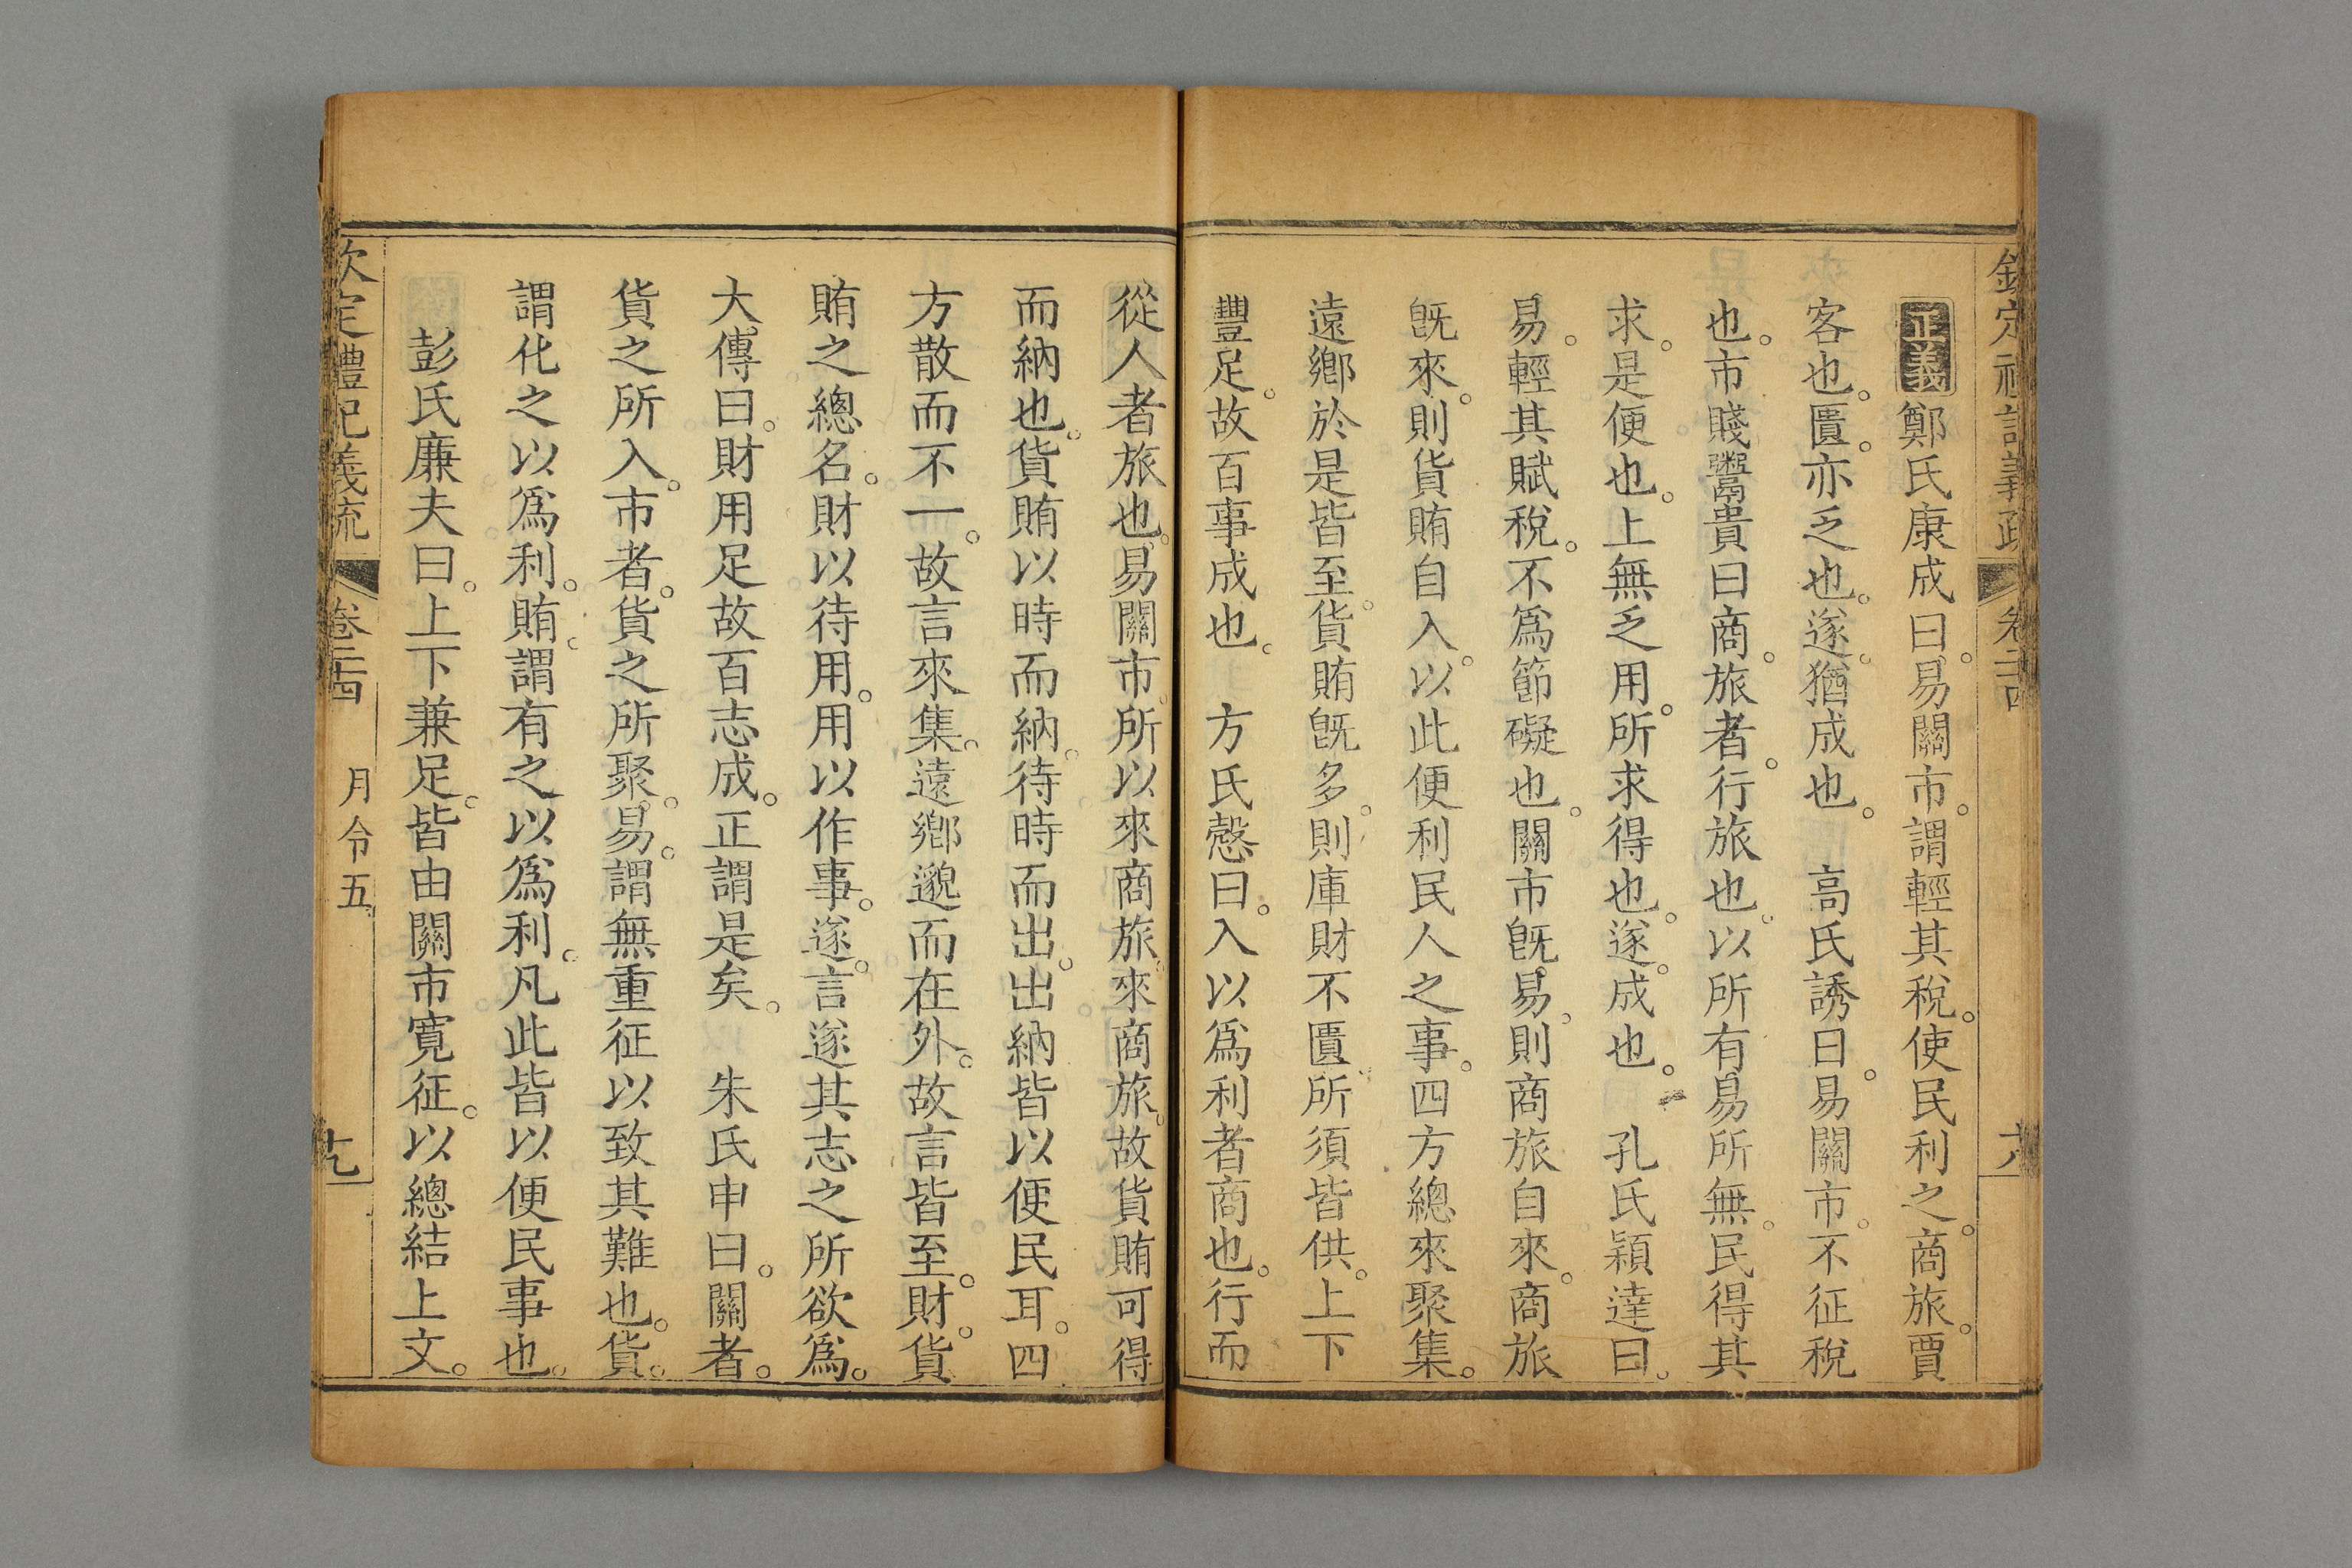 欽定禮記義疏 卷二十四 六
正義鄭氏康成曰。易關市。謂輕其稅。使民利之。商旅。賈
客也。匱。亦乏也。遂。猶成也。 高氏誘曰。易關市。不征稅
也。市賤鬻貴曰商。旅者。行旅也。以所有易所無。民得其
求。是便也。上無乏用。所求得也。遂。成也。 孔氏穎達曰。
易。輕其賦稅。不爲節礙也。關市旣易。則商旅自來。商旅
旣來。則貨賄自入。以此便利民人之事。四方總來聚集。
遠鄉於是皆至。貨賄旣多。則庫財不匱。所須皆供。上下
豐足。故百事成也。 方氏慤曰。入以爲利者商也。行而
從人者旅也。易關市。所以來商旅。來商旅。故貨賄可得
而納也。貨賄以時而納。待時而出。出納皆以便民耳。四
方散而不一。故言來集。遠鄉邈而在外。故言皆至。財。貨
賄之總名。財以待用。用以作事。遂。言遂其志之所欲爲。
大傳曰。財用足故百志成。正謂是矣。 朱氏申曰。關者。
貨之所入。市者。貨之所聚。易。謂無重征以致其難也。貨。
謂化之以爲利。賄。謂有之以爲利。凡此皆以便民事也。
彭氏廉夫曰。上下兼足。皆由關市寬征。以總結上文。
欽定禮記義疏 卷二十四 月令五